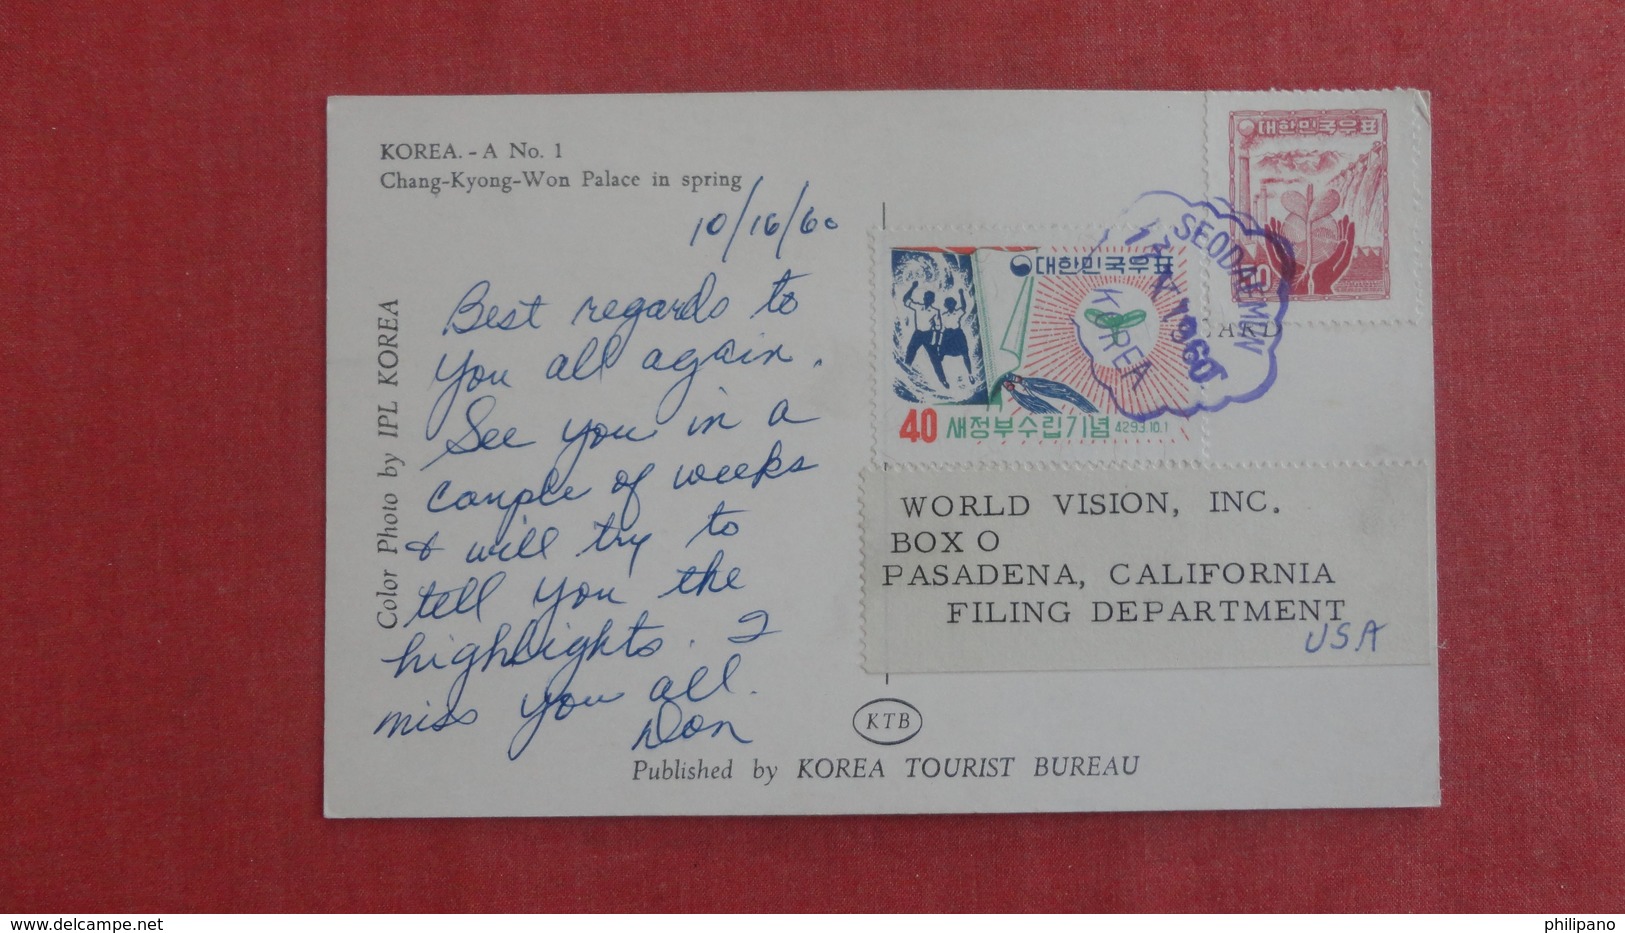 KOREA. - A No. 1
Chang-Kyong-Won Palace in spring
10/16/60
Best regards to
you all again.
See you in a
couple of weeks
& will try to
tell you the
highlights. I
miss you all.
Don
Color Photo by IPL KOREA
대한민국우표
대한민국우표
40 새정부수립기념 4293.10.1
SEODAEMUN
1960
KOREA
CARD
WORLD VISION, INC.
BOX O
PASADENA, CALIFORNIA
FILING DEPARTMENT
USA
KTB
Published by KOREA TOURIST BUREAU
http://www.delcampe.net
philipano